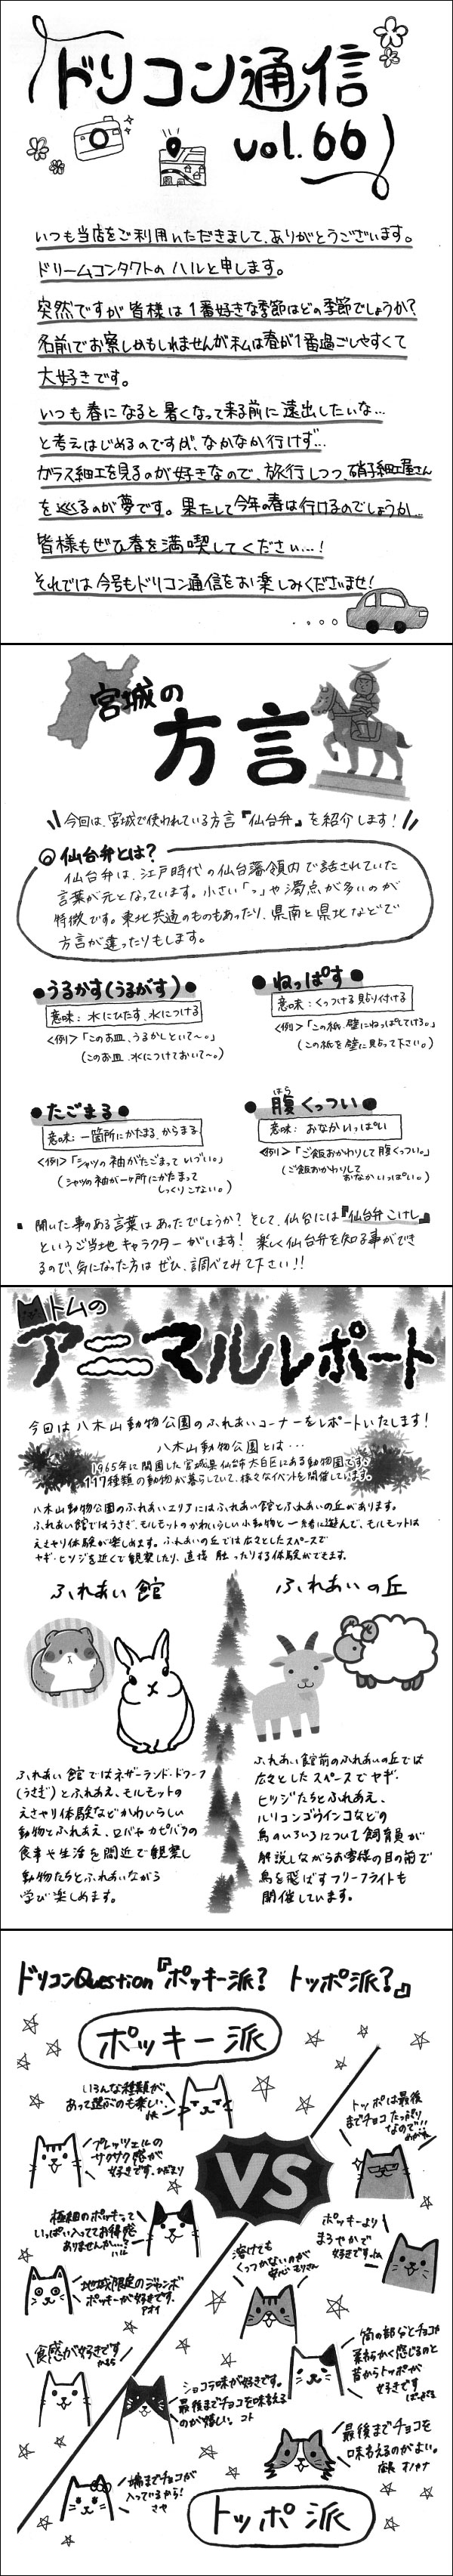 ドリコン通信
vol.66
いつも当店をご利用いただきまして、ありがとうございます。
ドリームコンタクトの ハルと申します。
突然ですが 皆様は 1番好きな季節はどの季節でしょうか?
名前でお察しかもしれませんが 私は春が1番過ごしやすくて
大好きです。
いつも 春になると 暑くなって来る前に 遠出したいな…
と考えはじめるのですが、なかなか行けず…
ガラス細工を見るのが好きなので、旅行しつつ、硝子細工屋さん
を巡るのが夢です。果たして今年の春は行けるのでしょうか…
皆様もぜひ春を満喫してください…!
それでは今号もドリコン通信をお楽しみくださいませ!
宮城の
方言
今回は、宮城で使われている方言『仙台弁』を紹介します!
仙台弁とは?
仙台弁は、江戸時代の仙台藩領内で話されていた
言葉が元となっています。小さい「っ」や濁点が多いのが
特徴です。東北共通のものもあったり、県南と県北などで
方言が違ったりもします。
●うるかす(うるがす)●
意味:水にひたす、水につける
<例>「このお皿、うるかしといて〜。」
(このお皿、水につけておいて〜。)
●ねっぱす●
意味:くっつける 貼り付ける
<例>「この紙、壁にねっぱしてけろ。」
(この紙を壁に貼って下さい。)
●たごまる●
意味:一箇所にかたまる、からまる
<例>「シャツの袖がたごまっていづい。」
(シャツの袖が一ヶ所にかたまって
しっくりこない。)
はら
●腹くっつい●
意味:おなかいっぱい
<例>「ご飯おかわりして腹くっつい。」
(ご飯おかわりして
おなかいっぱい。)
聞いた事のある言葉はあったでしょうか? そして、仙台には『仙台弁こけし』
というご当地キャラクターがいます! 楽しく仙台弁を知る事ができ
るので、気になった方は ぜひ、調べてみて下さい!!
トムの
アニマルレポート
今回は 八木山動物公園のふれあいコーナーをレポートいたします!
八木山動物公園とは…
1965年に開園した宮城県仙台市太白区にある動物園です。
117種類の動物が暮らしていて、様々なイベントを開催しています。
八木山動物公園のふれあいエリアにはふれあい館とふれあいの丘があります。
ふれあい館ではうさぎ、モルモットのかわいらしい小動物と一緒に遊んで、モルモットは
えさやり体験が楽しめます。ふれあいの丘では広々としたスペースで
ヤギ・ヒツジを近くで観察したり、直接触ったりする体験ができます。
ふれあい館
ふれあい館ではネザーランド・ドワーフ
(うさぎ)とふれあえ、モルモットの
えさやり体験などかわいらしい
動物とふれあえ、ロバやカピバラの
食事や生活を間近で観察し
動物たちとふれあいながら
学び楽しめます。
ふれあいの丘
ふれあい館前のふれあいの丘では
広々としたスペースでヤギ・
ヒツジたちとふれあえ、
ルリコンゴウインコなどの
鳥のいろいろについて飼育員が
解説しながらお客様の目の前で
鳥を飛ばすフリーフライトも
開催しています。
ドリコンQuestion『ポッキー派? トッポ派?』
ポッキー派
いろんな種類が
あって選ぶのも楽しい
プレッツェルの
サクサク感が
好きです。
極細のポッキーって
いっぱい入ってお得感
ありませんか…?
ハル
地域限定のジャンボ
ポッキーが好きです。
アオイ
食感が好きです
VS
トッポは最後
までチョコたっぷり
なので!!
ポッキーより
まろやかで
好きです。
溶けても
くっつかないのが
安心
筒の部分とチョコが
柔らかく感じるのと
昔からトッポが
好きです
ショコラ味が好きです。
最後までチョコを味わえる
のが嬉しい。コト
最後までチョコを
味わえるのがよい。
端までチョコが
入っているから!
さや
トッポ派